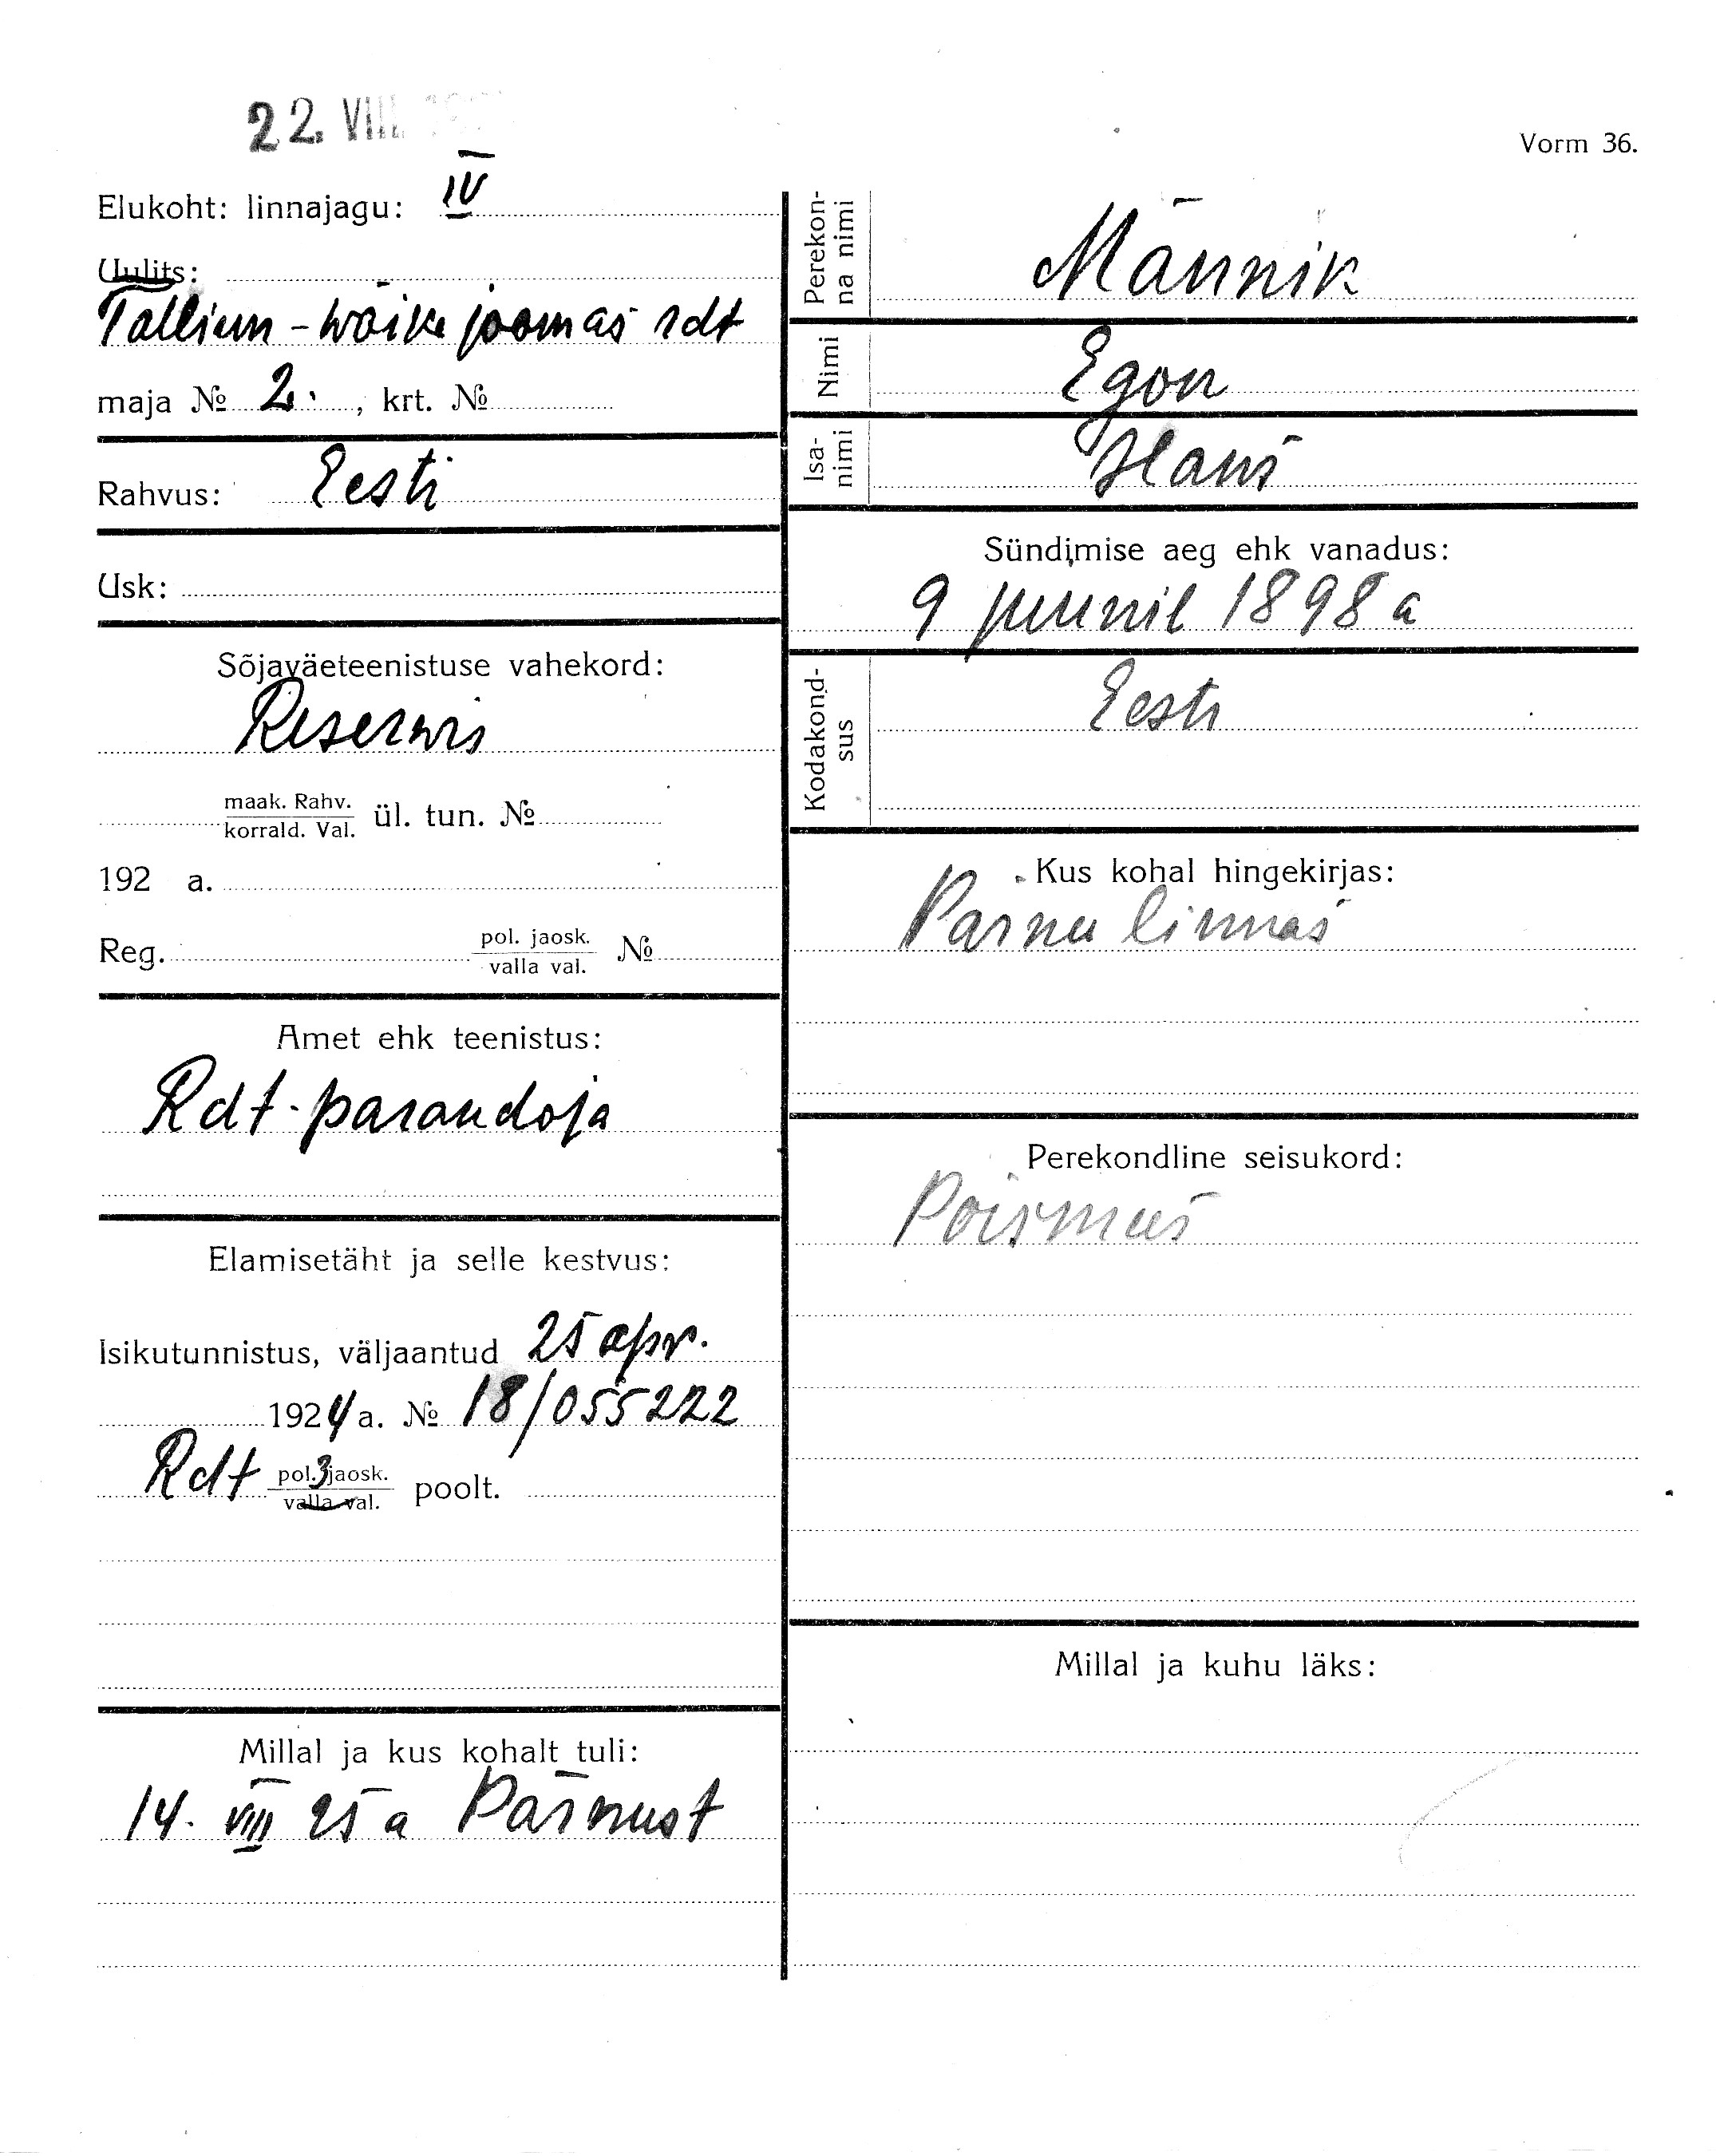 22. VIII
Vorm 36.
Elukoht: linnajagu: IV
Uulits:
Tallinn - wäike jaamas rdt
maja № 2. , krt. №
Rahvus: Eesti
Usk:
Sõjaväeteenistuse vahekord:
Reserwis
maak. Rahv.
korrald. Val. ül. tun. №
192 a.
Reg. pol. jaosk. №
valla val.
Amet ehk teenistus:
Rdt-parandaja
Elamisetäht ja selle kestvus:
Isikutunnistus, väljaantud 25 apr.
1924 a. № 18/055222
Rdt pol. 3 jaosk. poolt.
valla val.
Millal ja kus kohalt tuli:
14. VIII 25 a Pärnust
Perekon-
na nimi Männik
Nimi Egon
Isa-
nimi Hans
Sündimise aeg ehk vanadus:
9 juunil 1898 a
Kodakond-
sus Eesti
Kus kohal hingekirjas:
Pärnu linnas
Perekondline seisukord:
Poismees
Millal ja kuhu läks: